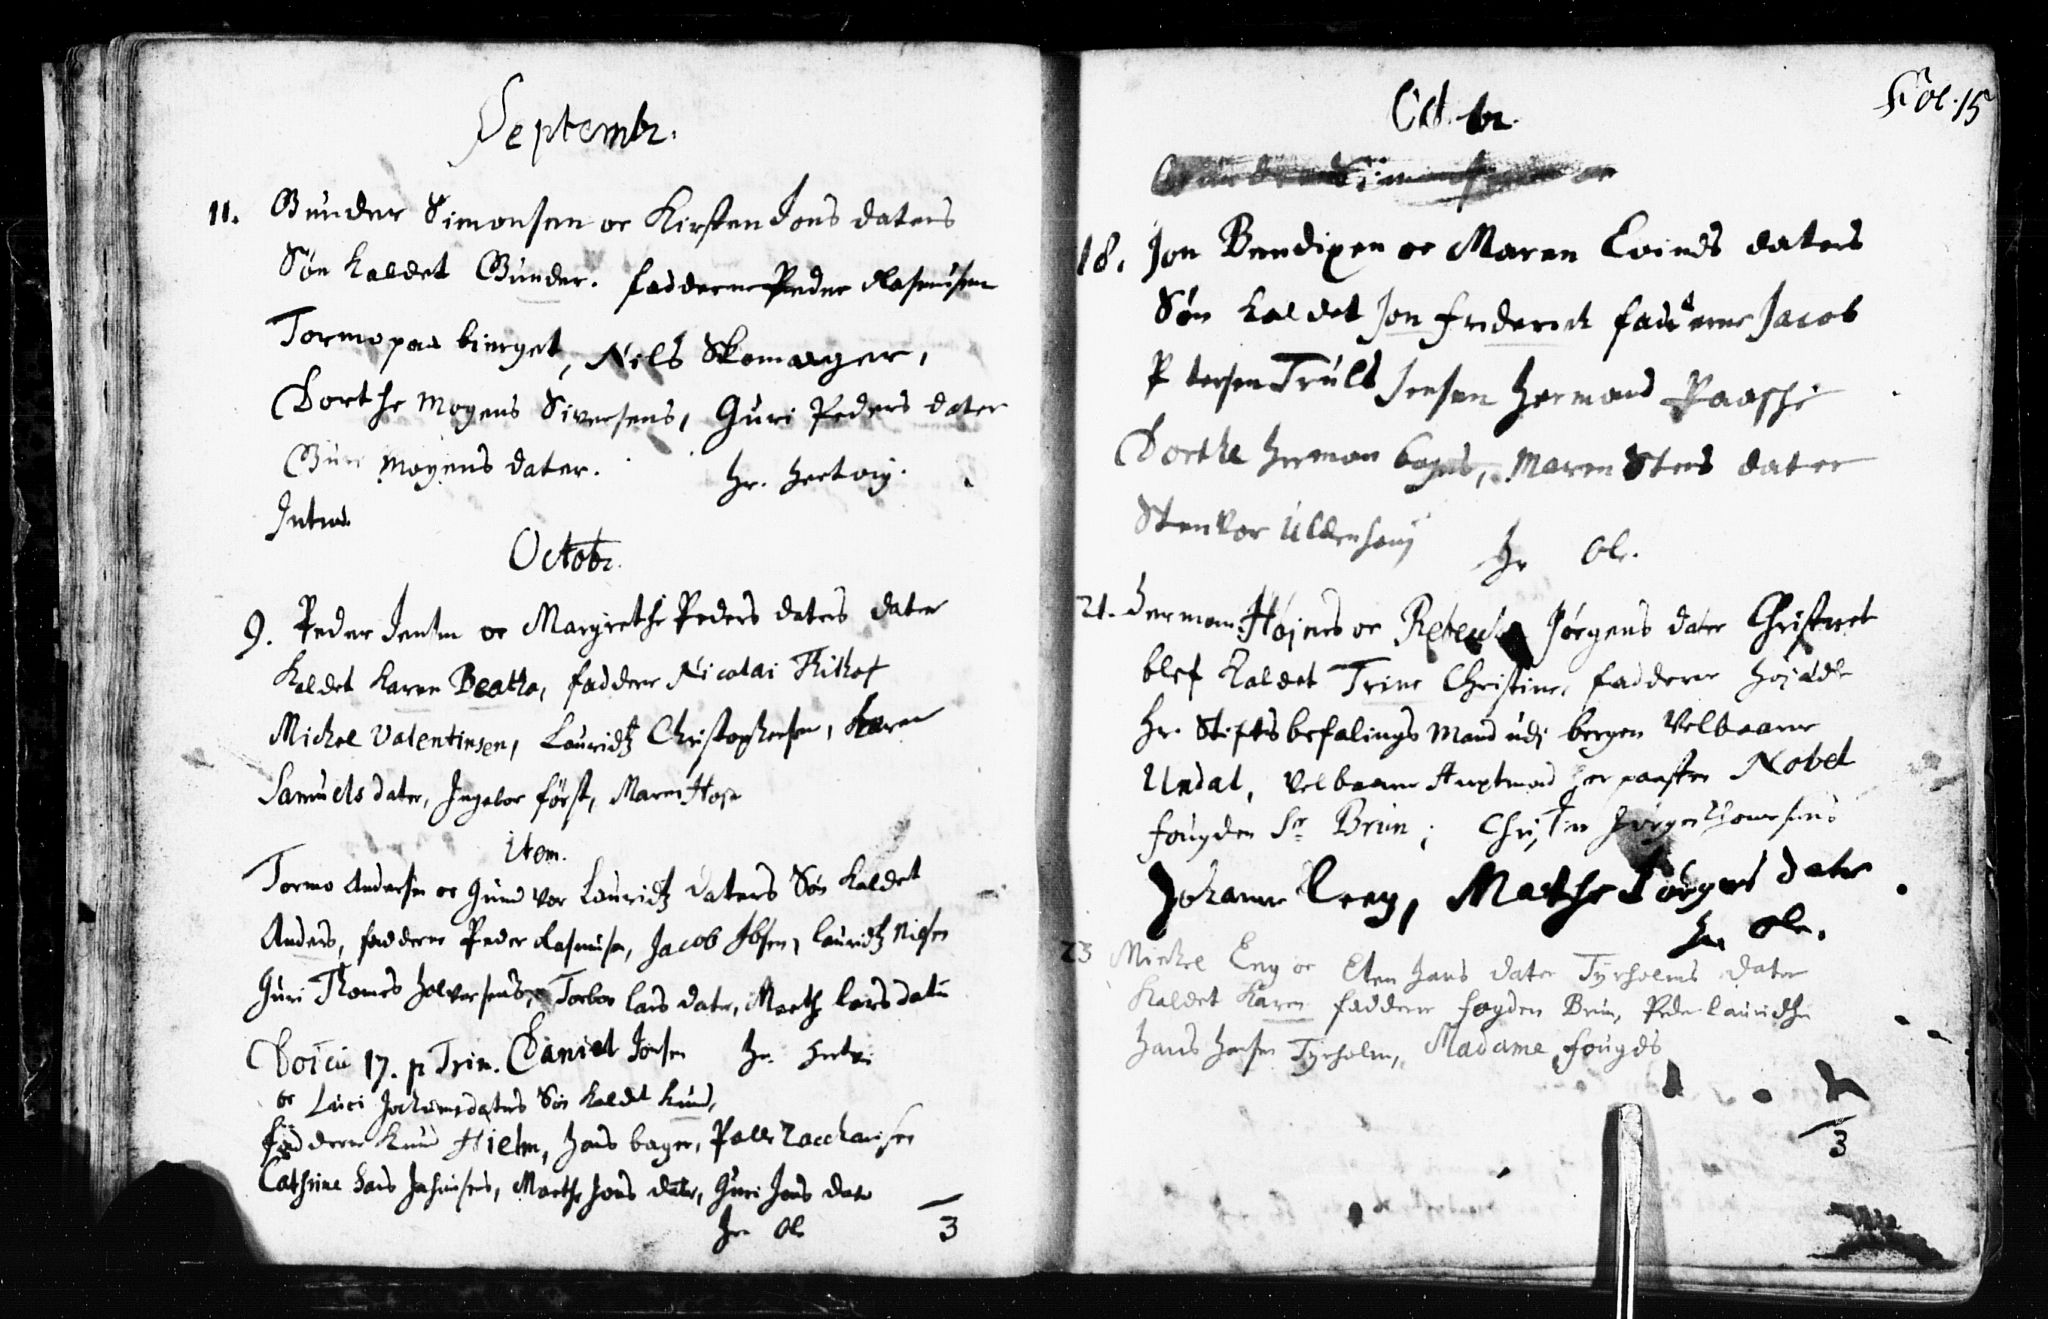 Septembr.
11. Gunder Simonsen oc Kirsten Jons daters
Søn kaldet Gunder. fadderne Peder Rasmusen
Tormo paa bierget, Nils Skomager,
Dorthe Mogens Siversens, Guri Peders dater
Guri Mogens dater. Hr. Hertvig.
Intrad.
Octobr.
9. Peder Jensen oc Margrethe Peders daters dater
kaldet Karen Beatha, faddere Nicolai
Michel Valentinsen, Lauridtz Christophersen, Karen
Samuels dater, Ingebor først, Maren
Item.
Tormo Andersen oc Gund vor Lauridtz daters Søn kaldet
Anders, faddere Peder Rasmusen, Jacob Ibsen, Lauridtz Nilsen
Guri Thomes Holversens, Torbor Lars dater, Marthe Lars dater
17. p Trin. Daniel Jonsen Hr. Hertvi
oc Luci Jochumsdaters Søn kaldet Knud,
faddere Knud Hielm, Hans bager, Palle Zacchariasen
Cathrine Hans, Marthe Jons dater, Guri Jons dater
Hr. Ole
3
Fol. 15
Oct. br.
18. Jon Bendixen oc Maren Evinds daters
Søn kaldet Jon Friderich fadderne Jacob
Petersen Truls Jensen Herman Paaske
Dorthe Herman bagers, Maren Stens dater
Stenvor
Hr Ole.
21. Herman Høyers oc Rebecka Jørgens dater Christnet
blef kaldet Trine Christine, faddere Høyædle
Hr. Stiftsbefalings Mand udi bergen Velbaarne
Undal, velbaarne Hauptmand Nobel
fougden Sr. Brun; Christin Jørgen Thomesens
Johanne Krey, Marthe Jørgens dater
Hr Ole.
23 Michel Eng oc Eten Hans dater Tyrholms dater
kaldet Karen faddere fogden Brun, Peder Lauridtzen
Hans Hansen Tyrholm, Madame fougds
3